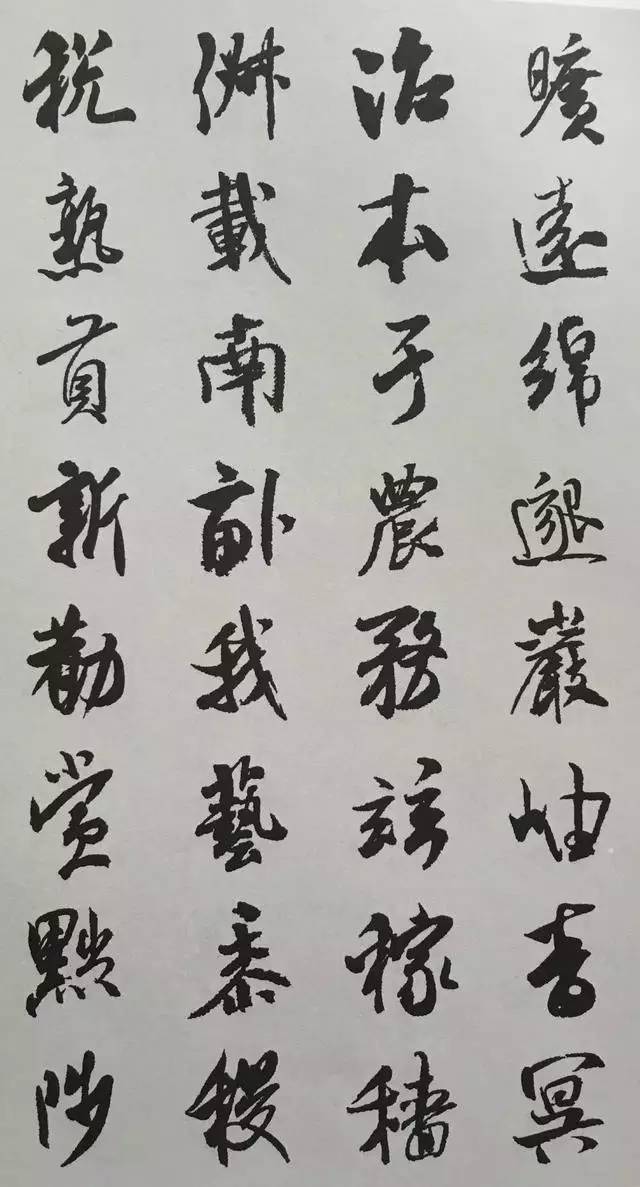 曠遠綿邈巖岫杳冥
治本于農務茲稼穡
俶載南畝我藝黍稷
稅熟貢新勸賞黜陟